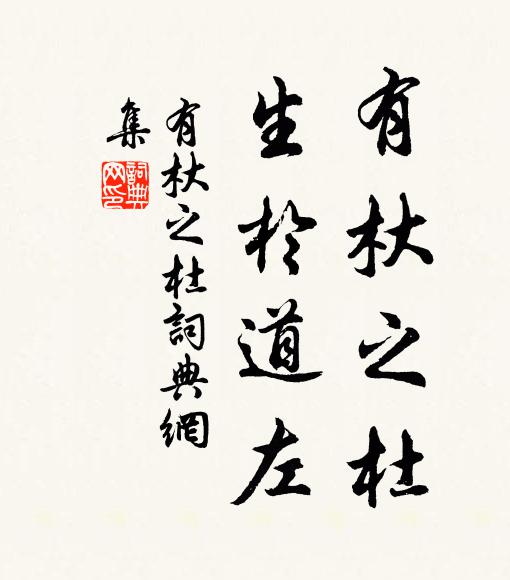 有杕之杜
生於道左
有杕之杜詞典網
集
詞典网印